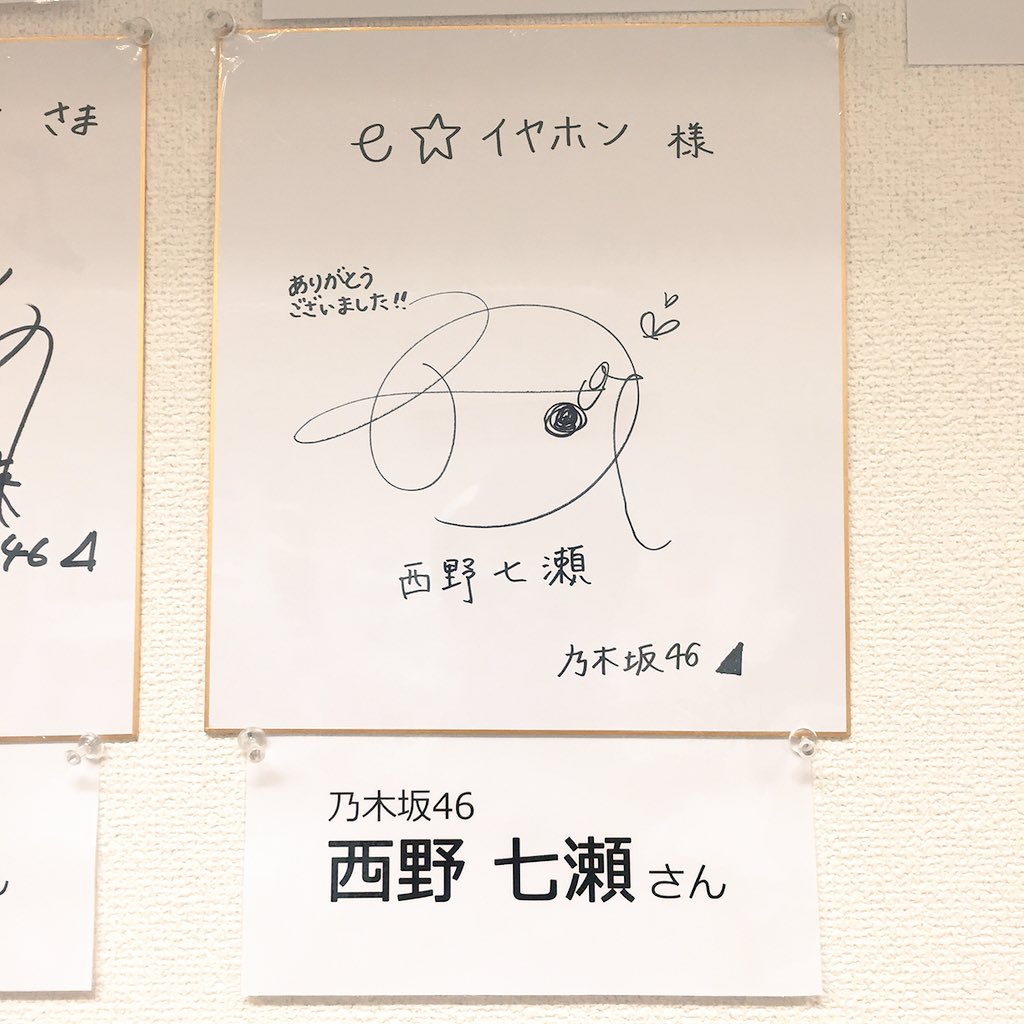 さま
46
e☆イヤホン 様
ありがとう
ございました!!
西野七瀬
乃木坂46
乃木坂46
西野 七瀬さん